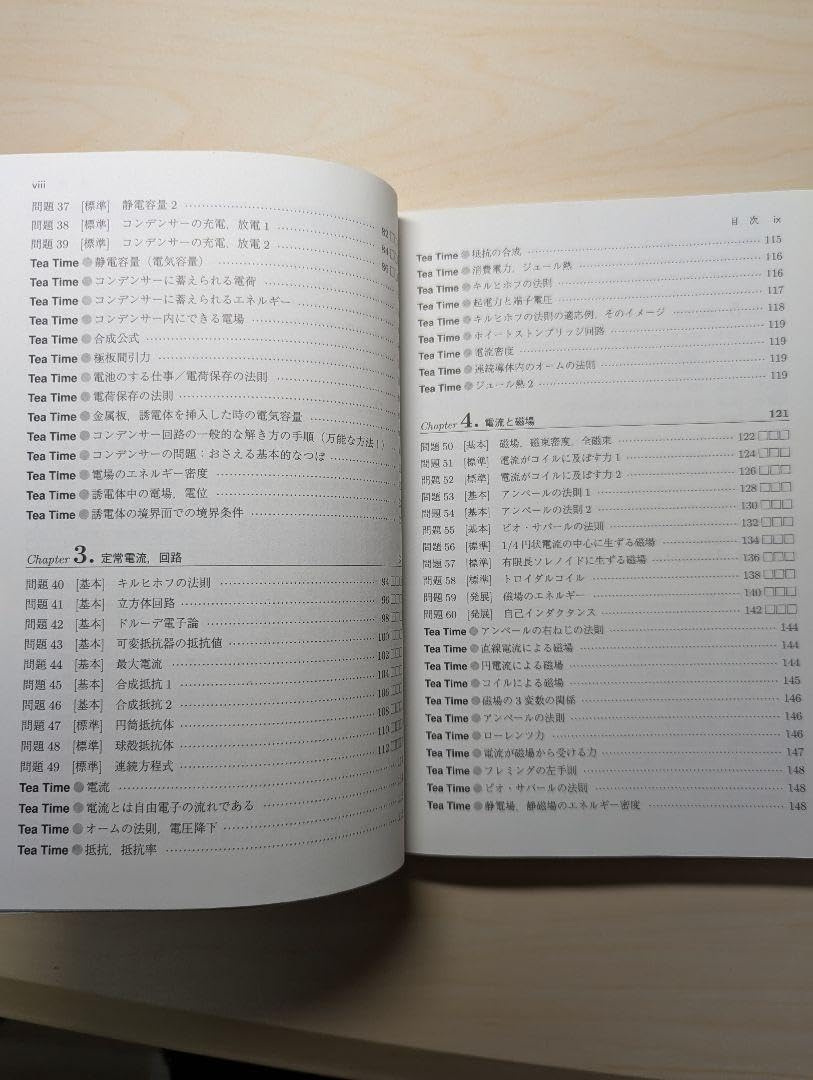 viii
問題 37 [標準] 静電容量 2
問題 38 [標準] コンデンサーの充電，放電 1 82
問題 39 [標準] コンデンサーの充電，放電 2 84
Tea Time 静電容量（電気容量） 86
Tea Time コンデンサーに蓄えられる電荷
Tea Time コンデンサーに蓄えられるエネルギー
Tea Time コンデンサー内にできる電場
Tea Time 合成公式
Tea Time 極板間引力
Tea Time 電池のする仕事／電荷保存の法則
Tea Time 電荷保存の法則
Tea Time 金属板，誘電体を挿入した時の電気容量
Tea Time コンデンサー回路の一般的な解き方の手順（万能な方法！）
Tea Time コンデンサーの問題：おさえる基本的なつぼ
Tea Time 電場のエネルギー密度
Tea Time 誘電体中の電場，電位
Tea Time 誘電体の境界面での境界条件
Chapter 3. 定常電流，回路
問題 40 [基本] キルヒホフの法則 94
問題 41 [基本] 立方体回路 96
問題 42 [基本] ドルーデ電子論 98
問題 43 [基本] 可変抵抗器の抵抗値 100
問題 44 [基本] 最大電流 102
問題 45 [基本] 合成抵抗 1 104
問題 46 [基本] 合成抵抗 2 106
問題 47 [標準] 円筒抵抗体 108
問題 48 [標準] 球殻抵抗体 110
問題 49 [標準] 連続方程式 112
Tea Time 電流
Tea Time 電流とは自由電子の流れである
Tea Time オームの法則，電圧降下
Tea Time 抵抗，抵抗率
目 次 ix
Tea Time 抵抗の合成 115
Tea Time 消費電力，ジュール熱 116
Tea Time キルヒホフの法則 116
Tea Time 起電力と端子電圧 117
Tea Time キルヒホフの法則の適応例，そのイメージ 118
Tea Time ホイートストンブリッジ回路 119
Tea Time 電流密度 119
Tea Time 連続導体内のオームの法則 119
Tea Time ジュール熱 2 119
Chapter 4. 電流と磁場 121
問題 50 [基本] 磁場，磁束密度，全磁束 122 □□□
問題 51 [標準] 電流がコイルに及ぼす力 1 124 □□□
問題 52 [標準] 電流がコイルに及ぼす力 2 126 □□□
問題 53 [基本] アンペールの法則 1 128 □□□
問題 54 [基本] アンペールの法則 2 130 □□□
問題 55 [基本] ビオ・サバールの法則 132 □□□
問題 56 [標準] 1/4 円状電流の中心に生ずる磁場 134 □□□
問題 57 [標準] 有限長ソレノイドに生ずる磁場 136 □□□
問題 58 [標準] トロイダルコイル 138 □□□
問題 59 [発展] 磁場のエネルギー 140 □□□
問題 60 [発展] 自己インダクタンス 142 □□□
Tea Time アンペールの右ねじの法則 144
Tea Time 直線電流による磁場 144
Tea Time 円電流による磁場 144
Tea Time コイルによる磁場 145
Tea Time 磁場の 3 変数の関係 146
Tea Time アンペールの法則 146
Tea Time ローレンツ力 146
Tea Time 電流が磁場から受ける力 147
Tea Time フレミングの左手則 148
Tea Time ビオ・サバールの法則 148
Tea Time 静電場，静磁場のエネルギー密度 148